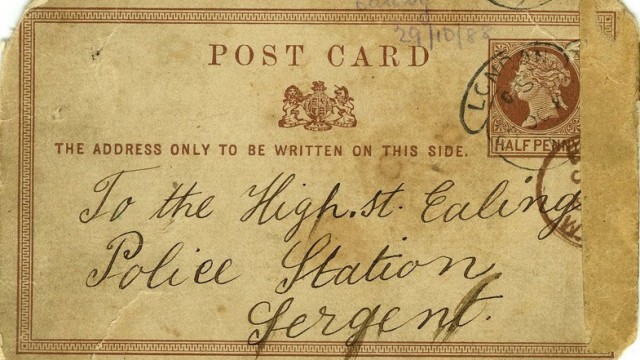 29/10/88
POST CARD
THE ADDRESS ONLY TO BE WRITTEN ON THIS SIDE.
HALF PENNY
To the High.st. Ealing
Police Station
Sergent.